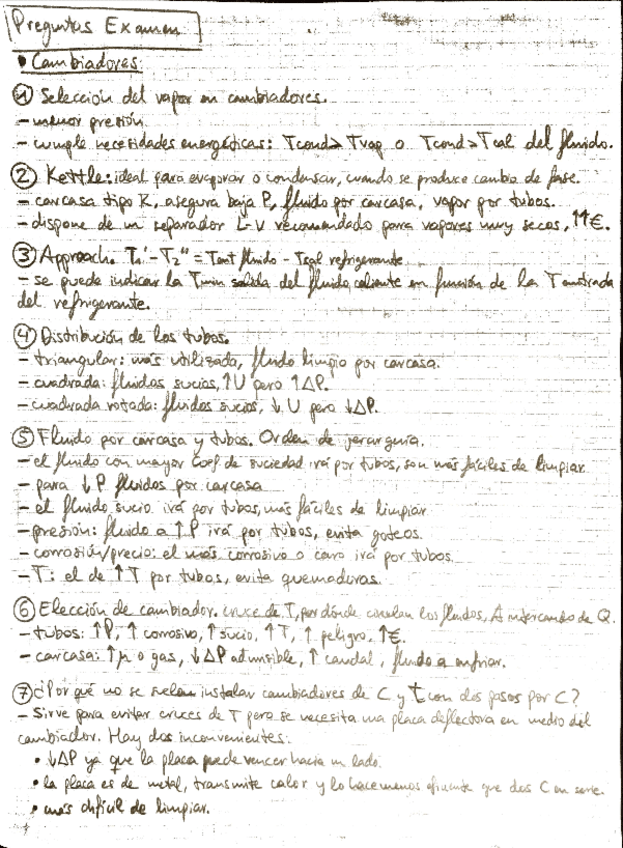 Preguntas Examen
• Cambiadores:
① Selección del vapor en cambiadores.
- menor presión
- cumple necesidades energéticas: Tcond > Tvap o Tcond > Tcal del fluido.
② Kettle: ideal para evaporar o condensar, cuando se produce cambio de fase.
- carcasa tipo K, asegura baja P, fluido por carcasa, vapor por tubos.
- dispone de un separador L-V recomendado para vapores muy secos, ↑↑€.
③ Approach. T₁' - T₂'' = Tent fluido - Tsal refrigerante
- se puede indicar la Tmin salida del fluido caliente en función de la T entrada
del refrigerante.
④ Distribución de los tubos.
- triangular: más utilizada, fluido limpio por carcasa.
- cuadrada: fluidos sucios, ↑U pero ↑ΔP.
- cuadrada rotada: fluidos sucios, ↓U pero ↓ΔP.
⑤ Fluido por carcasa y tubos. Orden de jerarquía.
- el fluido con mayor coef de suciedad irá por tubos, son más fáciles de limpiar.
- para ↓P fluidos por carcasa
- el fluido sucio irá por tubos, más fáciles de limpiar
- presión: fluido a ↑P irá por tubos, evita goteos.
- corrosión/precio: el más corrosivo o caro irá por tubos.
- T: el de ↑T por tubos, evita quemaduras.
⑥ Elección de cambiador. cruce de T, por dónde circulan los fluidos, A intercambio de Q.
- tubos: ↑P, ↑ corrosivo, ↑ sucio, ↑T, ↑ peligro, ↑€.
- carcasa: ↑μ o gas, ↓ΔP admisible, ↑ caudal, fluido a enfriar.
⑦ ¿Por qué no se suelen instalar cambiadores de C y t con dos pasos por C?
- Sirve para evitar cruces de T pero se necesita una placa deflectora en medio del
cambiador. Hay dos inconvenientes:
• ↓ΔP ya que la placa puede vencer hacia un lado.
• la placa es de metal, transmite calor y lo hace menos eficiente que dos C en serie.
• más difícil de limpiar.